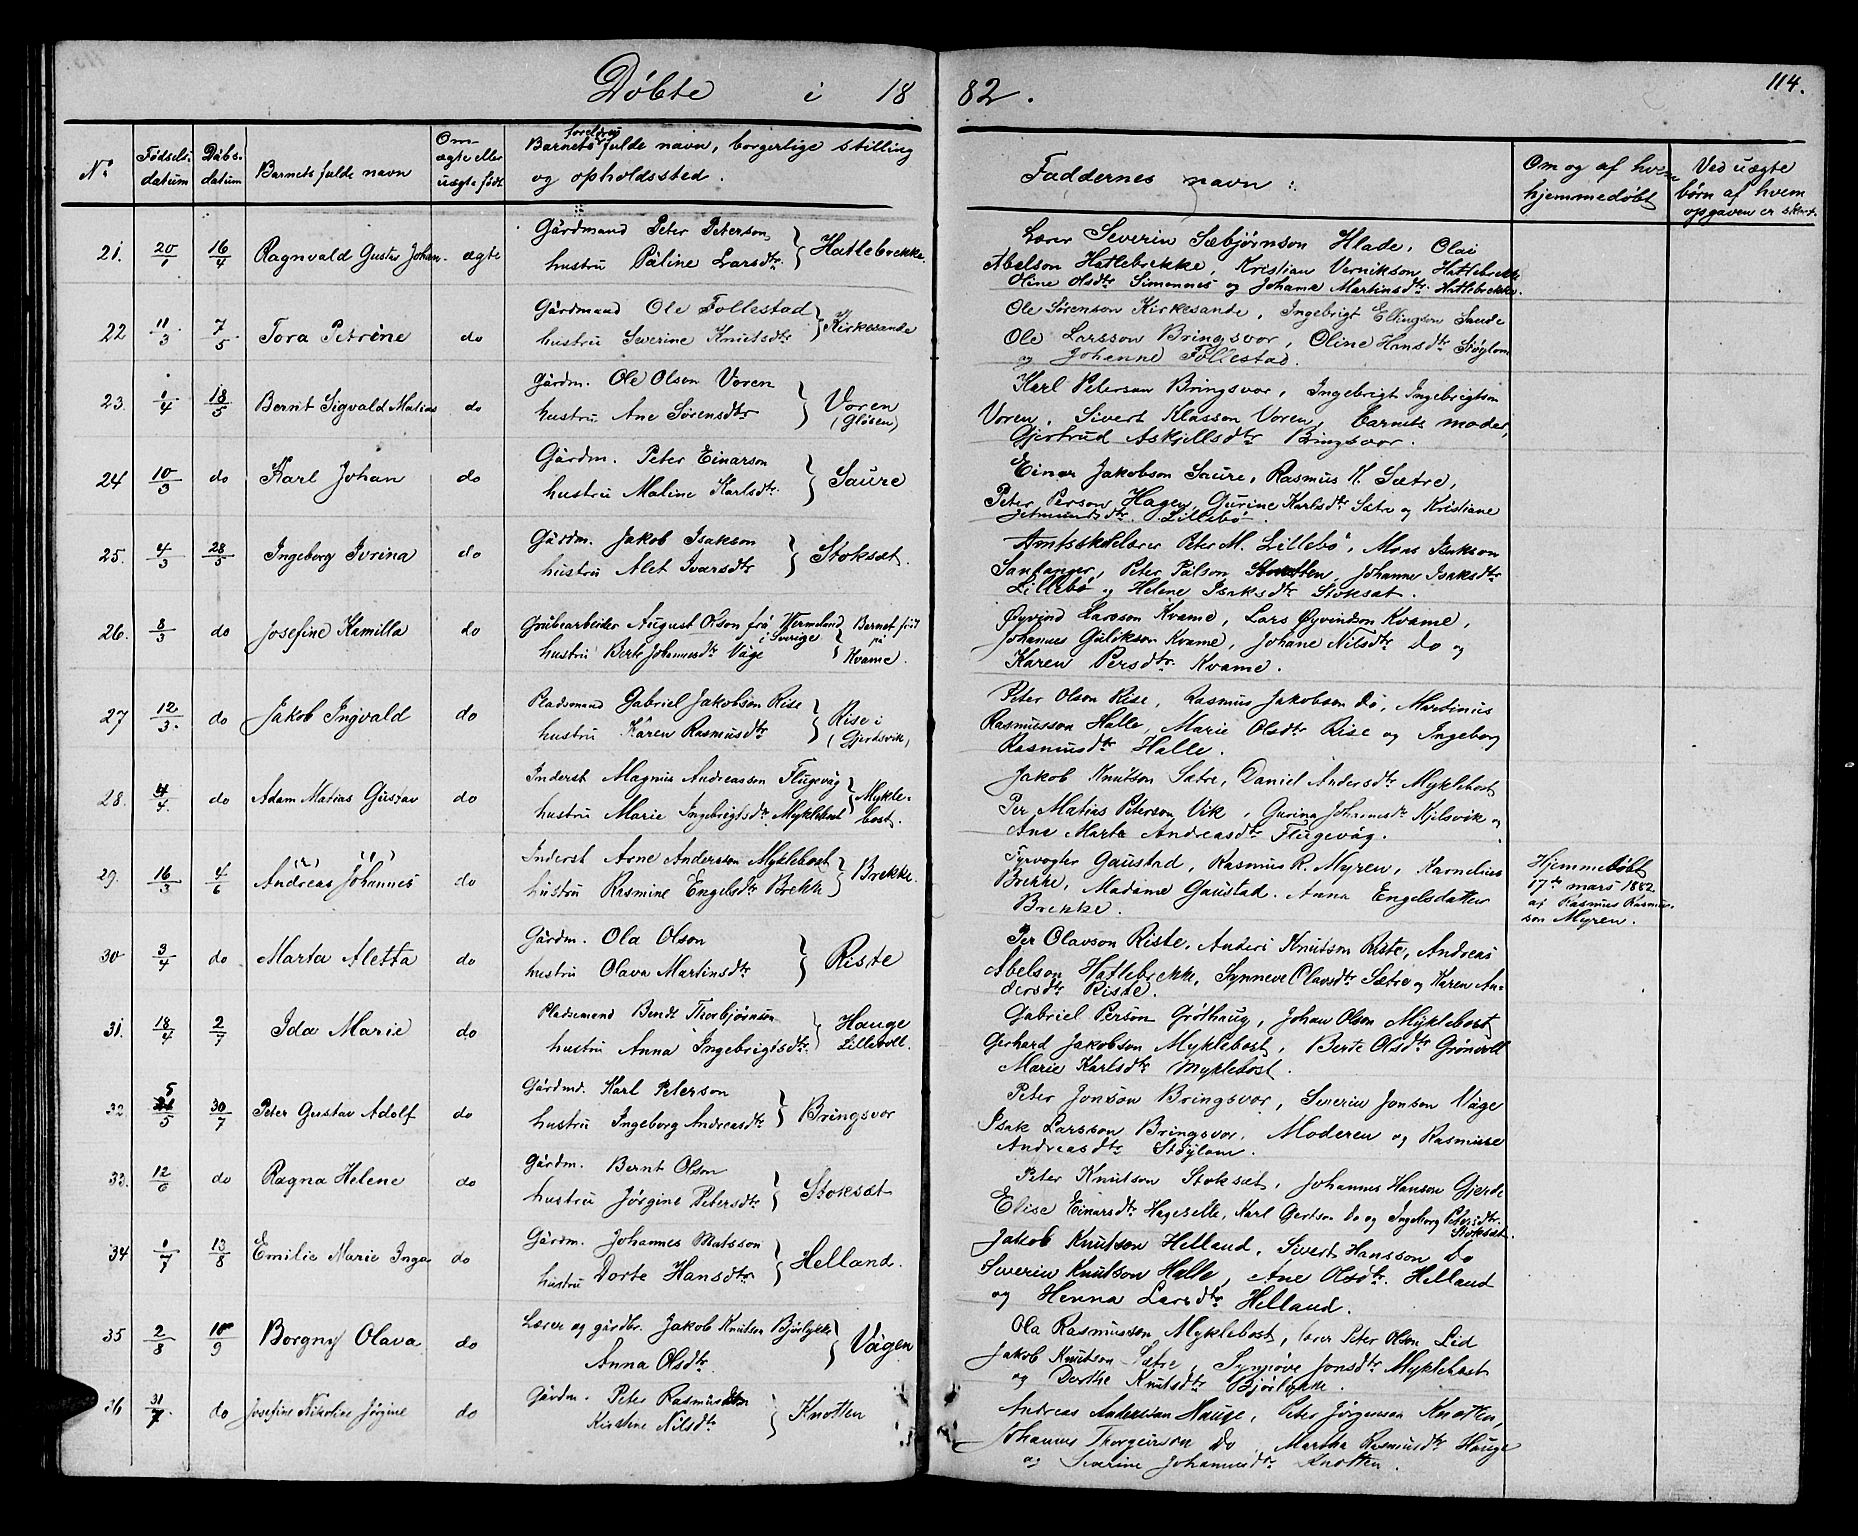 Døbte i 18
82.
114.
No
Fødsels-
datum
Dåbs-
datum
Barnets fulde navn
Om
ægte eller
uægte født
Barnets foreldres fulde navn, borgerlige stilling
og opholdssted.
Faddernes navn:
Om og af hvem
hjemmedøbt
Ved uægte
børn af hvem
opgaven er sket.
21. 20/1 16/4 Ragnvald Gustav Johan. ægte
Gårdmand Peter Peterson,
hustru Påline Larsdtr
Hatlebrekke.
Lærer Severin Sæbjørnson Hlade, Olai
Abelson Hatlebrekke, Kristian Vernikson Hatlebrekke
Oline Olsdtr Simonnes og Johane Martinsdtr Hatlebrekke.
22 11/3 7/5 Tora Petrine do
Gårdmand Ole Follestad
hustru Severine Knutsdtr
Kirkesande
Ole Sørenson Kirkesande, Ingebrigt Ellingson Sande
Ole Larsson Bringsvor, Oline Hansdtr Støylom
og Johanne Follestad.
23. 1/4 18/5 Bernt Sigvald Matias do
Gårdm. Ole Olson Voren
hustru Ane Sørensdtr
Voren
(Gløsen)
Karl Peterson Bringsvor, Ingebrigt Ingebrigtson
Voren, Sivert Klasson Voren, barnets moder,
Gjertrud Askjellsdtr Bringsvor.
24 10/3 do Karl Johan do
Gårdm. Peter Einarson
hustru Maline Karlsdtr
Saure
Einar Jakobson Saure, Rasmus K. Sætre,
Peter Person Hagen, Gurine Karlsdtr Sætre og Kristiane
Jetmundsdtr. Lillebø.
25. 4/3 28/5 Ingeborg Ivrina do
Gårdm. Jakob Isakson
hustru Alet Ivarsdtr
Stoksæt.
Amtsskolelærer Peter M. Lillebø, Mons Isakson
Sandanger, Peter Pålson Knotten, Johanne Isaksdtr
Lillebø og Helene Isaksdtr Stoksæt.
26. 8/3 do Josefine Kamilla do
Grubearbeider August Olson frå Vermeland
i Sverige
hustru Berte Johannesdtr Våge
Barnet født
på
Kvame.
Øyvind Larsson Kvame, Lars Øyvindson Kvame,
Johannes Gulikson Kvame, Johane Nilsdtr Do og
Karen Persdtr. Kvame.
27 12/3. do Jakob Ingvald do
Pladsmand Gabriel Jakobson Rise
hustru Karen Rasmusdtr
Rise i
(Gjerdsvik)
Peter Olson Rise, Rasmus Jakobson Do, Martinus
Rasmusson Halle, Marie Olsdtr Rise og Ingeborg
Rasmusdtr Halle.
28. 4/4. do Adam Matias Gustav do
Inderst Magnus Andreasson Flugevåg
hustru Marie Ingebrigtsdtr. Myklebost
Mykle-
bost.
Jakob Knutson Sætre, Daniel Andersdtr Myklebost
Per Matias Peterson Vik, Gurina Johannesdtr Kjelsvik og
Ane Marta Andreasdtr Flugevåg.
29. 16/3 4/6 Andreas Johannes do
Inderst Arne Andersson Myklebost
hustru Rasmine Engelsdtr Brekk
Brekke.
Fyrvogter Gaustad, Rasmus R. Myren, Kornelius
Brekke, Madame Gaustad. Anna Engelsdatter
Brekke.
Hjemmedøbt
17de mars 1882
af Rasmus Rasmus-
son Myren.
30 3/4 do Marta Aletta do
Gårdm. Ola Olson
hustru Olava Martinsdtr
Riste
Per Olavson Riste, Anders Knutson Riste, Andreas
Abelson Hatlebrekke, Synneve Olavsdtr Sætre og Karen An-
dersdtr Riste.
31. 18/4 2/7 Ida Marie do
Pladsemand Bendt Thorbjørnson
hustru Anna Ingebrigtsdtr.
Hauge
Lillevoll.
Gabriel Person Grothaug, Johan Olson Myklebost,
Gerhard Jakobson Myklebost, Berte Olsdtr Grønvoll
Marie Karlsdtr Myklebost.
32 5/5 30/7 Peter Gustav Adolf do
Gårdmd. Karl Peterson
hustru Ingeborg Andreasdtr
Bringsvor
Peter Jonson Bringsvor, Severin Jonson Våge
Isak Larsson Bringsvor, Moderen og Rasmine
Andreasdtr Støylom.
33. 12/6 do Ragna Helene do
Gårdm. Bernt Olson
hustru Jørgine Petersdtr
Stoksæt
Peter Knutson Stoksæt, Johannes Hanson Gjerde
Elise Einarsdtr Hageselle, Karl Gertson Do og Ingeborg Petersdtr.
Stoksæt.
34 1/7 13/8 Emilie Marie Inga do
Gårdm. Johannes Matsson
hustru Dorte Hansdtr
Helland.
Jakob Knutson Helland, Sivert Hansson Do
Severin Knutson Halle, Ane Olsdtr. Helland
og Henna Larsdtr Helland.
35 2/8 10/9 Borgny Olava do
Lærer og gårdbr. Jakob Knutson Bjørlykke
Anna Olsdtr.
Vågen
Ola Rasmusson Myklebost, lærer Peter Olson Lid
Jakob Knutson Sætre, Synnøve Jonsdtr Myklebost
og Dorthe Knutsdtr Bjørlykke.
36 31/7. do Josefine Nikoline Jørgine do
Gårdm. Peter Rasmusson
Kirstine Nilsdtr
Knotten
Andreas Andersson Hauge, Peter Jørgenson Knotten,
Johannes Thorgeirson Do, Martha Rasmusdtr Hauge
og Severine Johannesdtr Knotten.